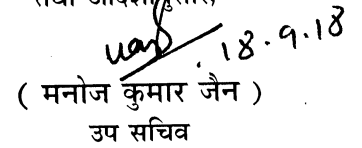 18.9.18
( मनोज कुमार जैन )
उप सचिव